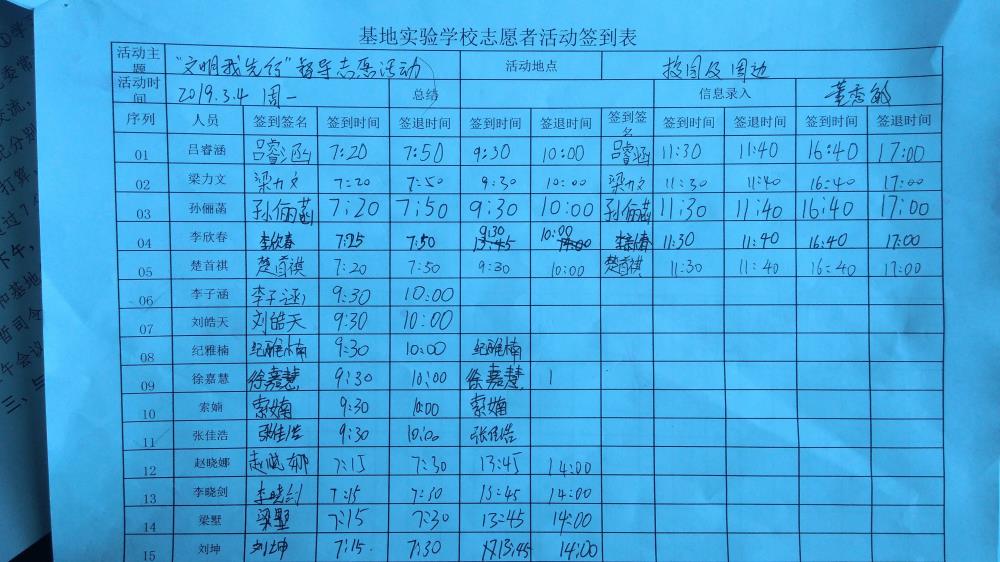 基地实验学校志愿者活动签到表
活动主题 "文明我先行"督导志愿活动 活动地点 校园及周边
活动时间 2019.3.4 周一 总结 信息录入 董秀敏
序列 人员 签到签名 签到时间 签退时间 签到时间 签退时间 签到签名 签到时间 签退时间 签到时间 签退时间
01 吕睿涵 吕睿涵 7:20 7:50 9:30 10:00 吕睿涵 11:30 11:40 16:40 17:00
02 梁力文 梁力文 7:20 7:50 9:30 10:00 梁力文 11:30 11:40 16:40 17:00
03 孙俪菡 孙俪菡 7:20 7:50 9:30 10:00 孙俪菡 11:30 11:40 16:40 17:00
04 李欣春 李欣春 7:25 7:50 9:30 10:00 李欣春 11:30 11:40 16:40 17:00
05 楚首祺 楚首祺 7:20 7:50 9:30 10:00 楚首祺 11:30 11:40 16:40 17:00
06 李子涵 李子涵 9:30 10:00
07 刘皓天 刘皓天 9:30 10:00
08 纪雅楠 纪雅楠 9:30 10:00 纪雅楠
09 徐嘉慧 徐嘉慧 9:30 10:00 徐嘉慧
10 索婻 索婻 9:30 10:00 索婻
11 张佳浩 张佳浩 9:30 10:00 张佳浩
12 赵晓娜 赵晓娜 7:15 7:30 13:45 14:00
13 李晓剑 李晓剑 7:15 7:30 13:45 14:00
14 梁墅 梁墅 7:15 7:30 13:45 14:00
15 刘坤 刘坤 7:15. 7:30 13:45 14:00